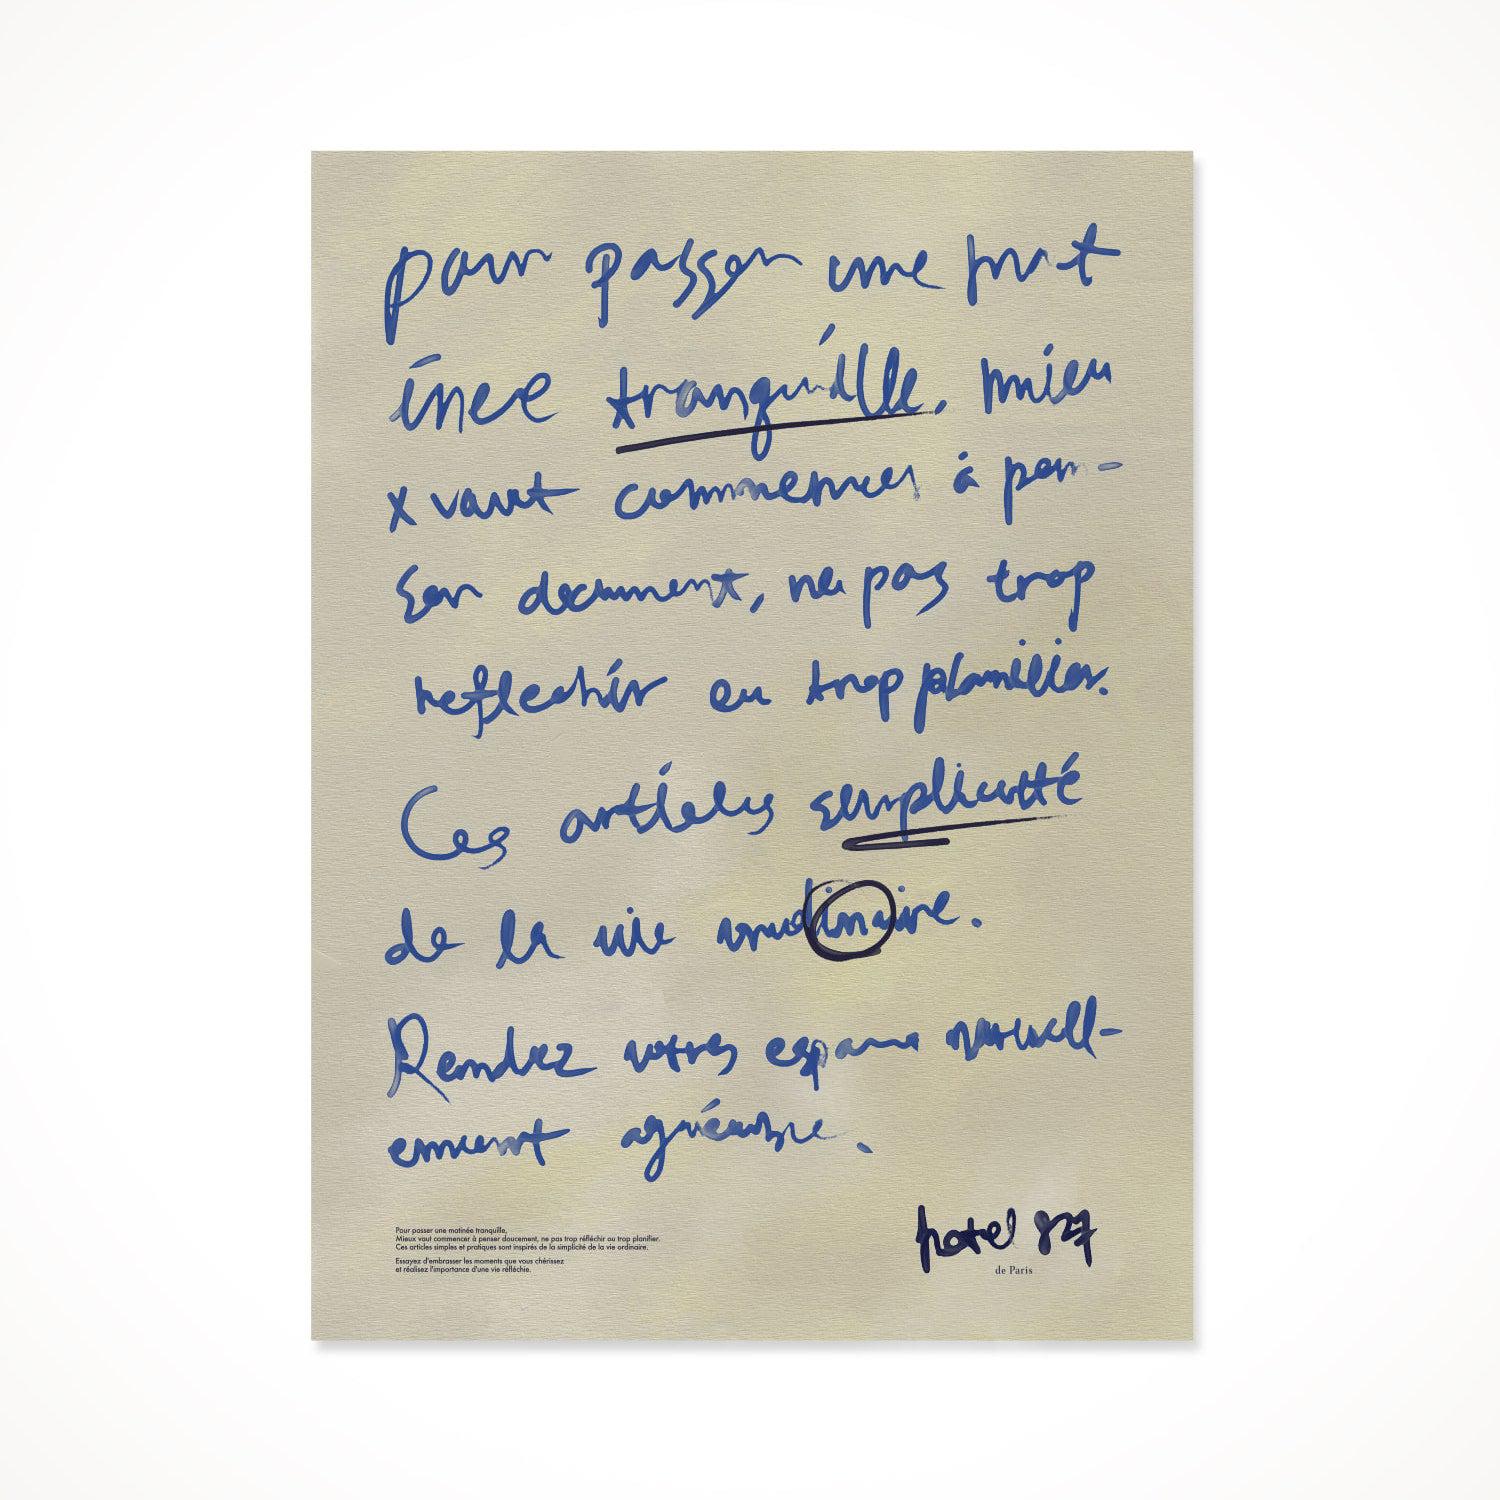 pour passer une mat
inee tranquille, mieu
x vaut commencer à pen-
ser doucement, ne pas trop
reflechir ou trop planifier.
Ces articles simplicité
de la vie ordinaire.
Rendez votre espace naturell-
ement agréable.
Pour passer une matinée tranquille,
Mieux vaut commencer à penser doucement, ne pas trop réfléchir ou trop planifier.
Ces articles simples et pratiques sont inspirés de la simplicité de la vie ordinaire.
Essayez d'embrasser les moments que vous chérissez
et réalisez l'importance d'une vie réfléchie.
hotel 827
de Paris